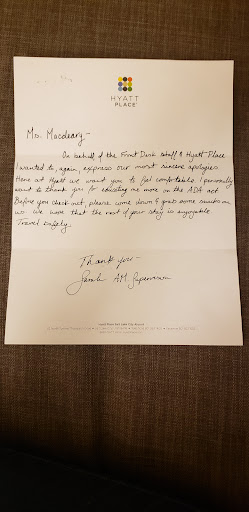 HYATT
PLACE
Ms. Macdeary -
On behalf of the Front Desk staff @ Hyatt Place
I wanted to, again, express our most sincere apologies
Here at Hyatt we want you to feel comfortable. I personally
want to thank you for educating me more on the ADA act
Before you check out, please come down & grab some snacks on
us. We want that the rest of your stay is enjoyable.
Travel Safely.
Thank you -
Sarah AM. Supervisor